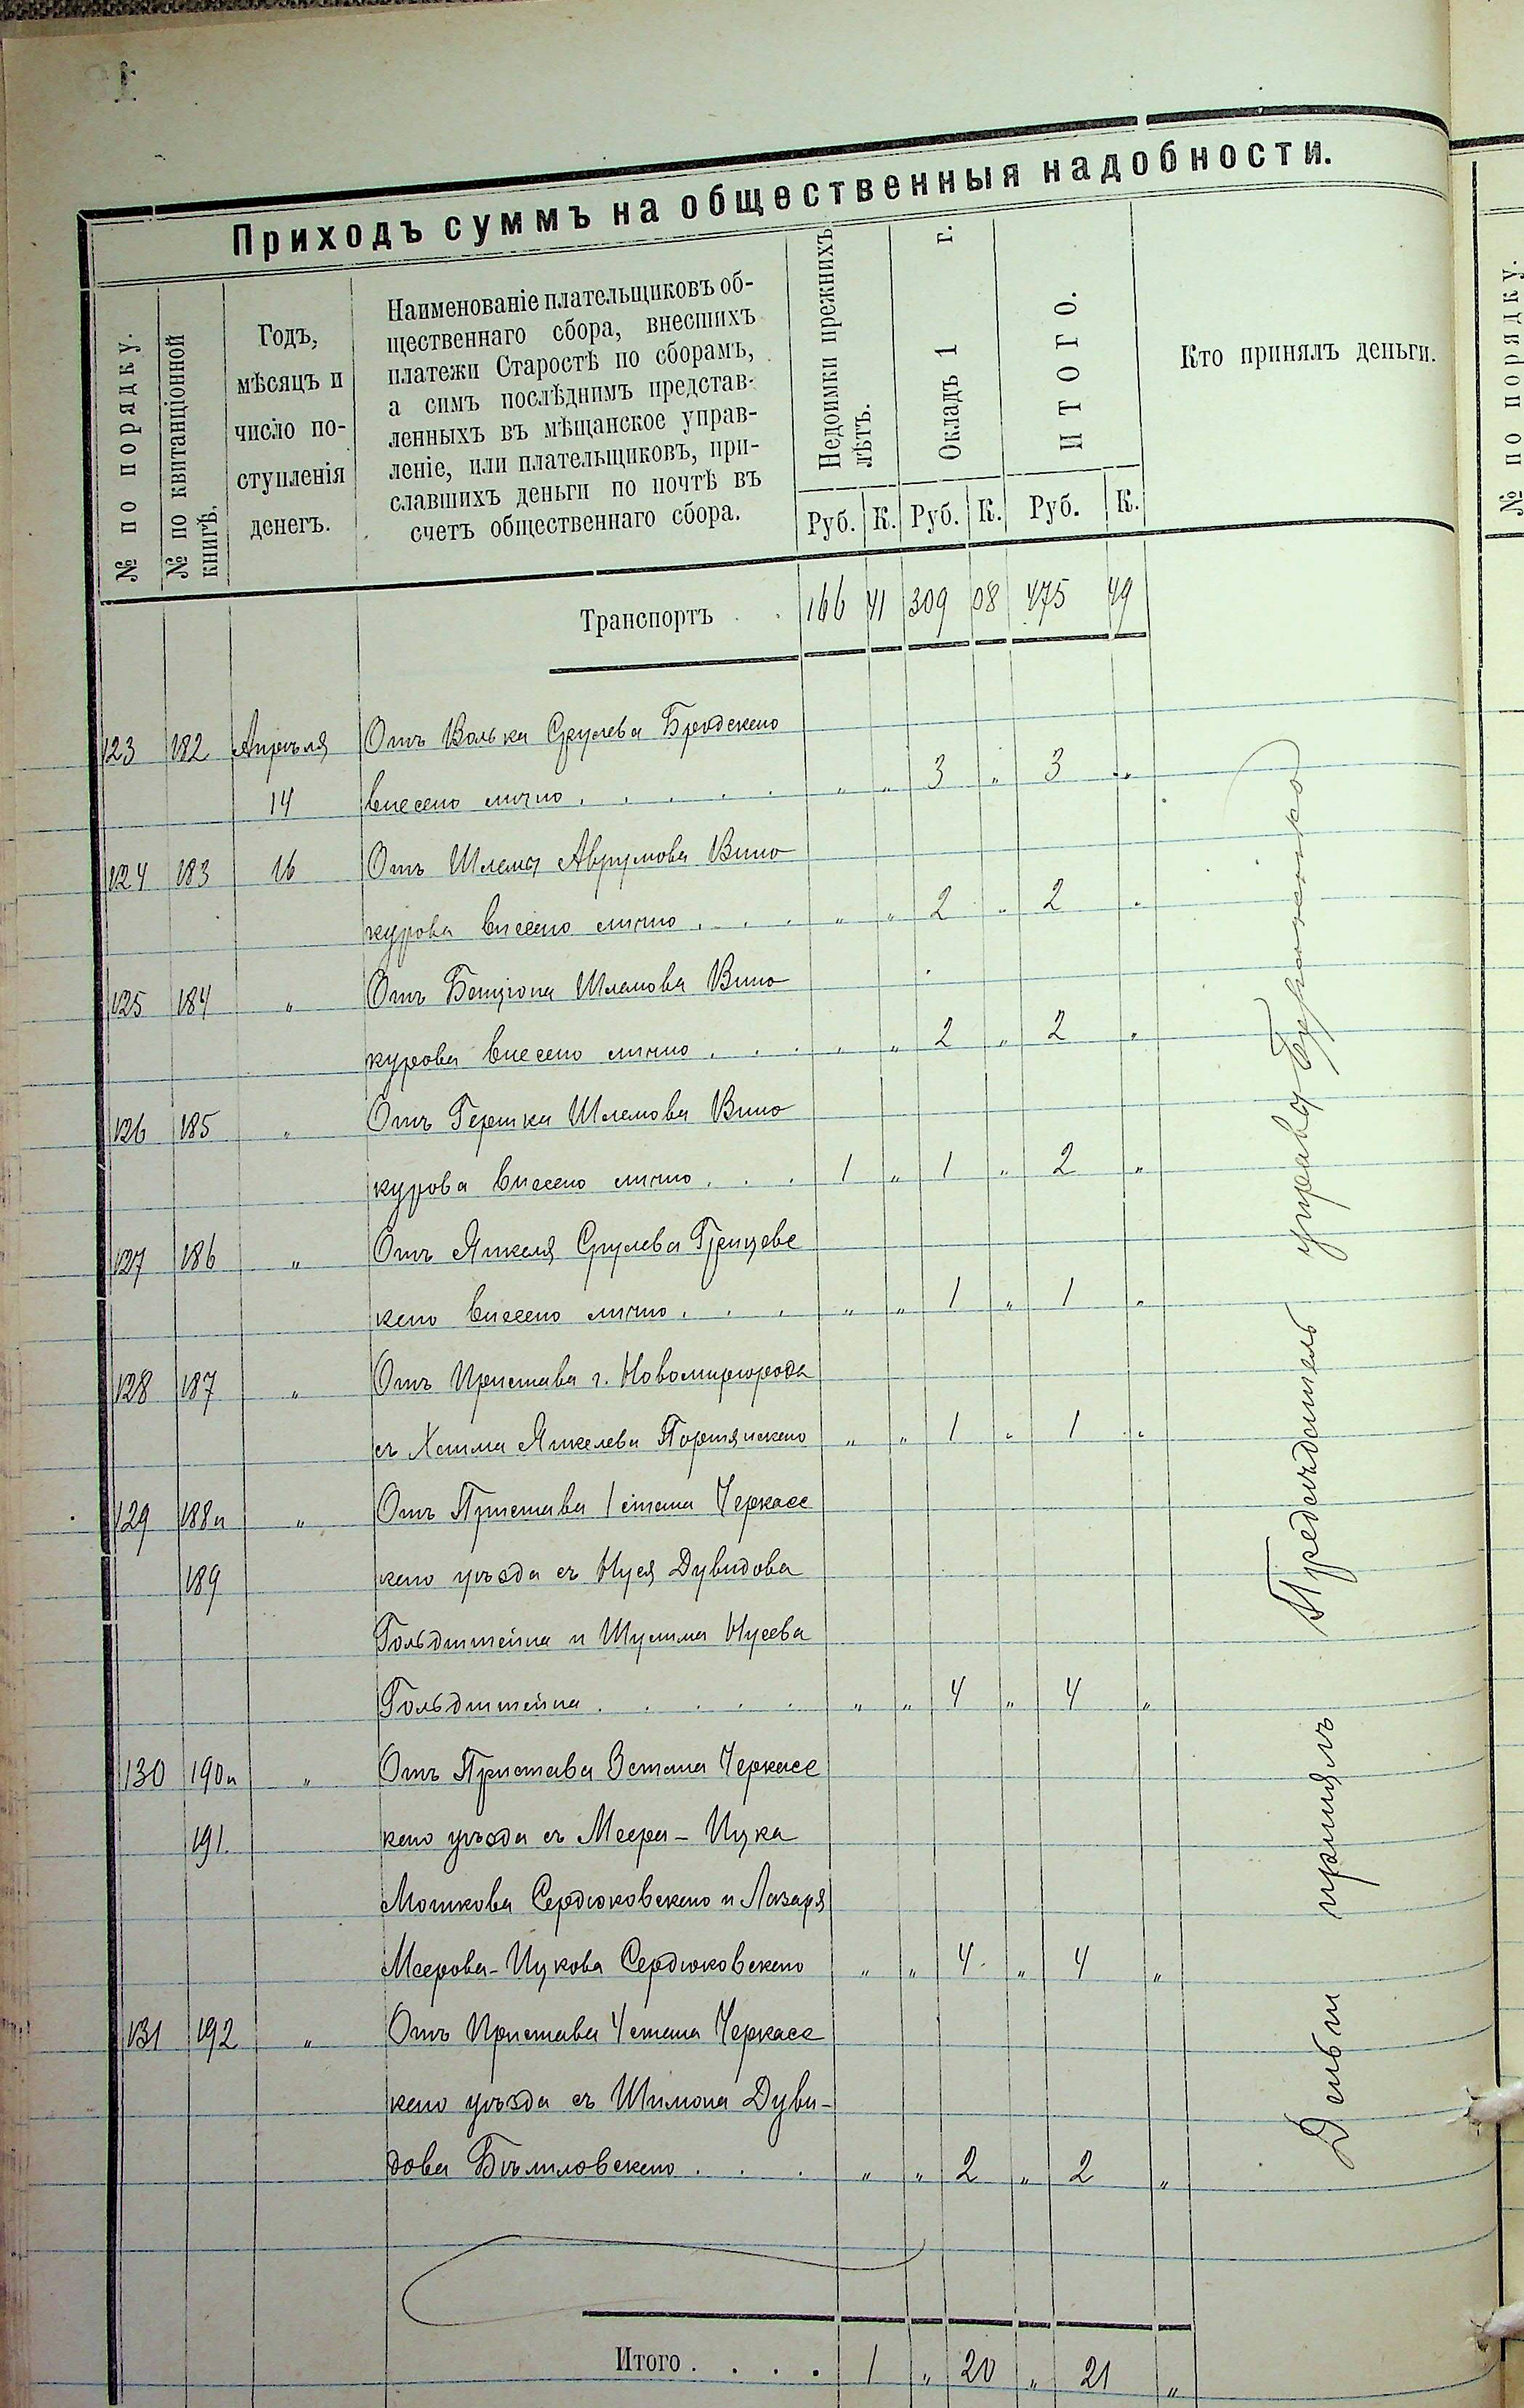 Приходъ суммъ на общественныя надобности.
№ по порядку.
№ по квитанціонной книгѣ.
Годъ, мѣсяцъ и число поступленія денегъ.
Наименованіе плательщиковъ об-
щественнаго сбора, внесшихъ
платежи Старостѣ по сборамъ,
а симъ послѣднимъ представ-
ленныхъ въ мѣщанское управ-
леніе, или плательщиковъ, при-
славшихъ деньги по почтѣ въ
счетъ общественнаго сбора.
Недоимки прежнихъ лѣтъ.
Окладъ 1 г.
ИТОГО.
Кто принялъ деньги.
Руб. К. Руб. К. Руб. К.
Транспортъ . . 166 41 309 08 475 49
123 182 Апрѣля Отъ Волька Срулева Бродскаго
14 внесено лично . . . . . " " 3 " 3 "
124 183 16 Отъ Шлемы Аврумова Вино
курова внесено лично . . . " " 2 " 2 "
125 184 " Отъ Бенціона Шлемова Вино
курова внесено лично . . . " " 2 " 2 "
126 185 " Отъ Гершка Шлемова Вино
курова внесено лично . . . 1 " 1 " 2 "
127 186 " Отъ Янкеля Срулева
внесено лично . . . " " 1 " 1 "
128 187 " Отъ Пристава г. Новомиргорода
съ Хаима Янкелева " " 1 " 1 "
129 188и " Отъ Пристава 1 стана Черкасс
189 каго уѣзда съ Нуся Дувидова
Гольдштейна и Шулима Нусева
Гольдштейна . . . . . " " 4 " 4 "
130 190и " Отъ Пристава 3 стана Черкасс
191. каго уѣзда съ Меера-Ицка
Мошкова Сердюковскаго и Лазаря
Меерова-Ицкова Сердюковскаго " " 4 " 4 "
131 192 " Отъ Пристава 4 стана Черкасс
каго уѣзда съ Шимона Дуви-
дова Бѣлиловскаго . . . " " 2 " 2 "
Итого . . . . 1 " 20 " 21 "
Деньги принялъ Предсѣдатель управы
№ по порядку.